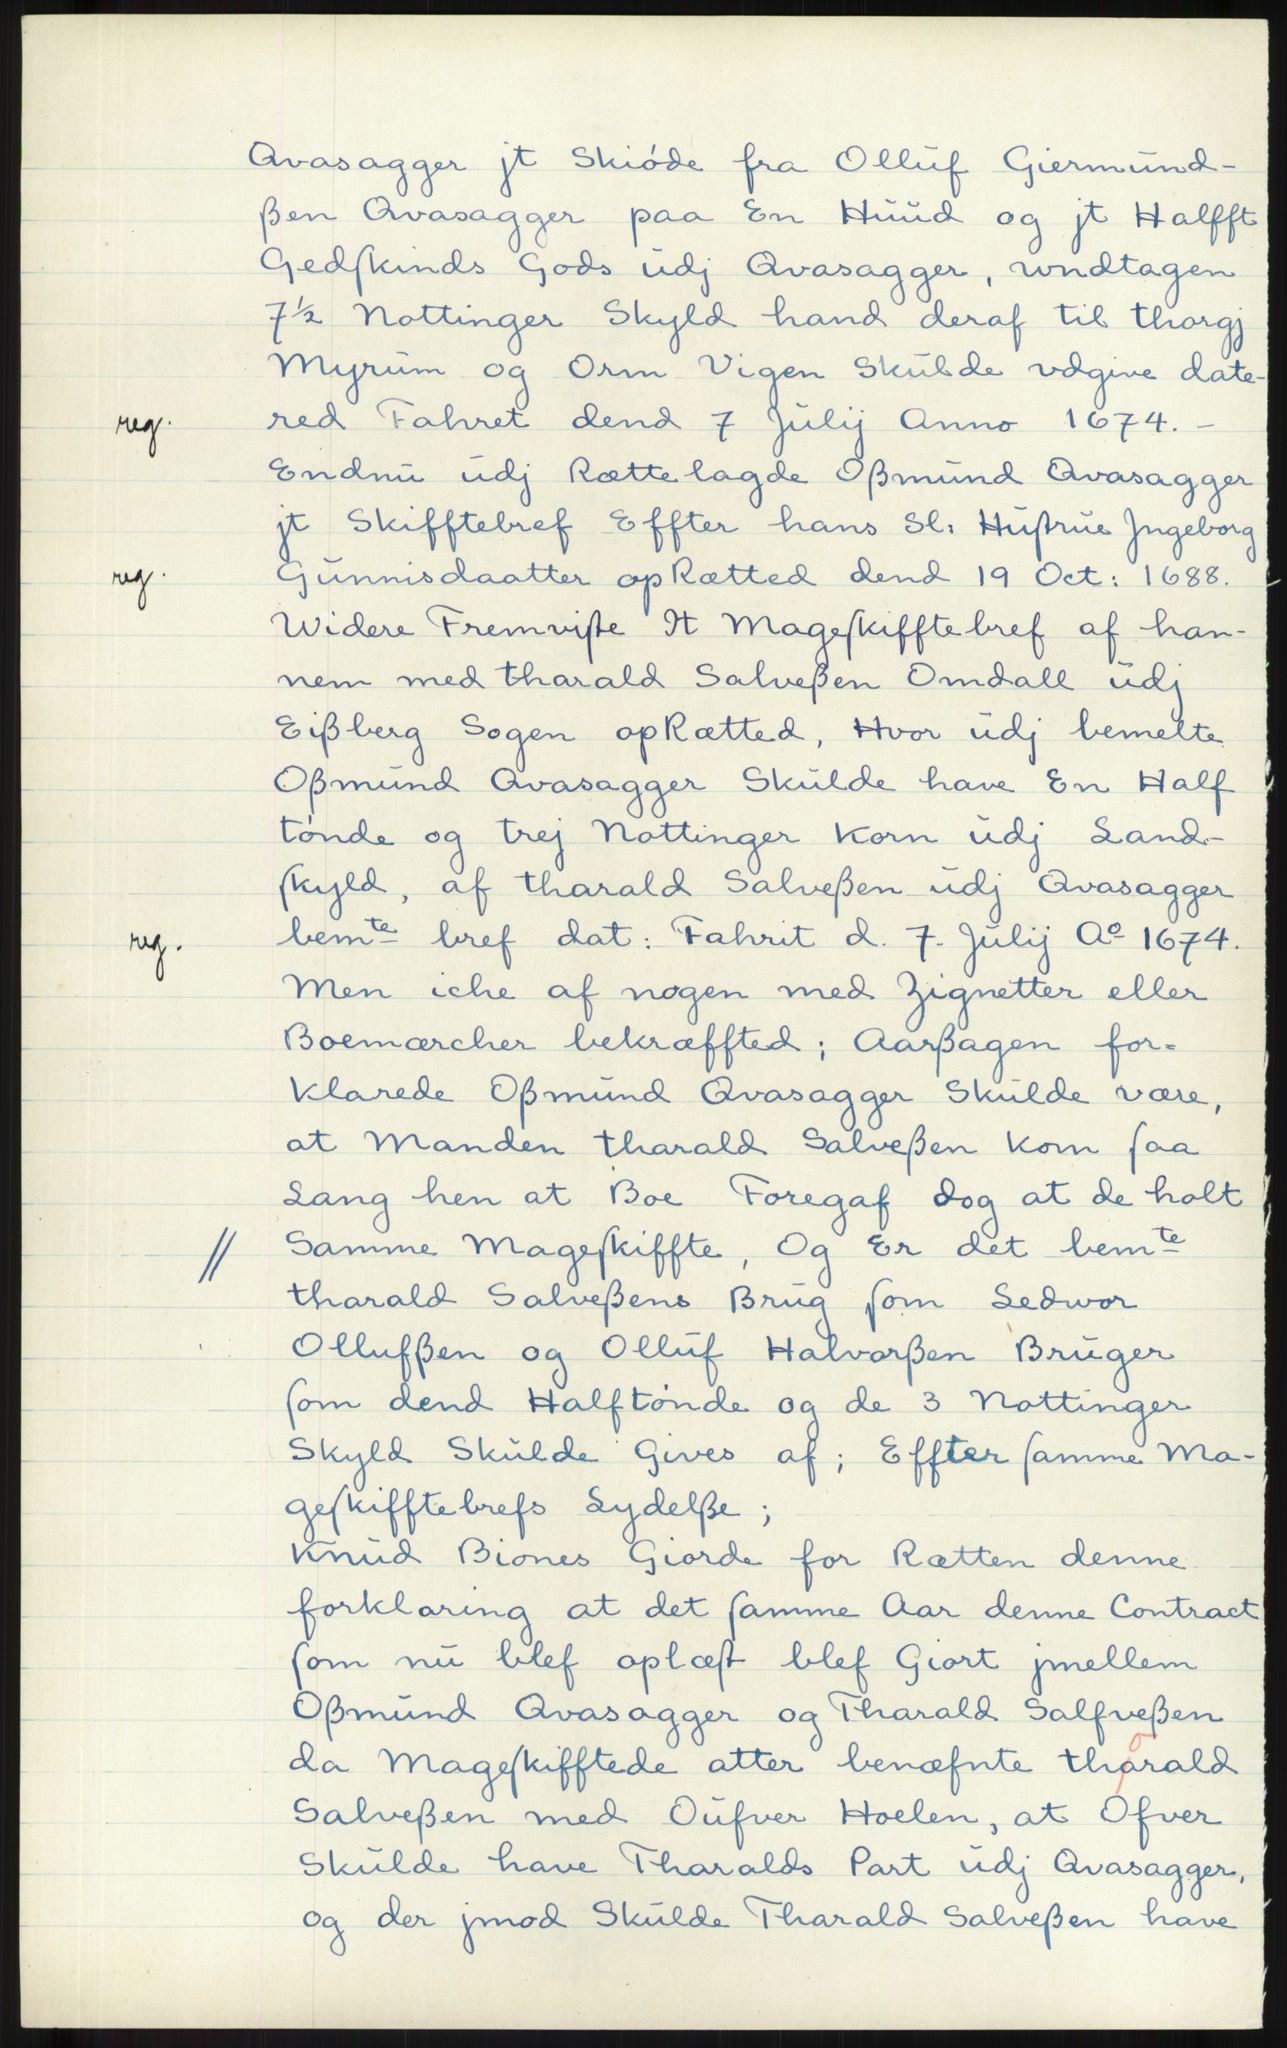 Qvasagger jt Skiøde fra Olluf Giermund-
ßen Qvasagger paa En Huud og jt Halfft
Gedskinds Gods udj Qvasagger, undtagen
7½ Nottinger Skyld hand deraf til thorgj
Myrum og Orm Vigen Skulde vdgive date-
reg. red Fahret dend 7 Julij Anno 1674. -
Endnu udj Rættelagde Oßmund Qvasagger
jt Skifftebref Effter hans Sl: Hustrue Jngeborg
reg. Gunnisdaatter opRætted dend 19 Oct: 1688.
Widere Fremviste It Mageskifftebref af han-
nem med tharald Salveßen Omdall udj
Eißberg Sogen opRætted, Hvor udj bemelte
Oßmund Qvasagger Skulde have En Half
tønde og trej Nottinger Korn udj Land-
skyld, af tharald Salveßen udj Qvasagger
reg. bemte bref dat: Fahrit d. 7. Julij Ao 1674.
Men iche af nogen med Zignetter eller
Boemærcher bekræffted; Aarßagen for=
klarede Oßmund Qvasagger Skulde være,
at Manden tharald Salveßen Kom saa
Lang hen at Boe Foregaf dog at de holt
// Samme Mageskiffte, Og Er det bemte
tharald Salveßens Brug som Sedvor
Ollufßen og Olluf Halvorßen Bruger
som dend Halftønde og de 3 Nottinger
Skyld Skulde Gives af; Effter samme Ma-
geskifftebrefs Lydelße;
Knud Biones Giorde for Rætten denne
forklaring at det samme Aar denne Contract
som nu blef oplæst blef Giort jmellem
Oßmund Qvasagger og Tharald Salfveßen
da Mageskifftede atter benæfnte tharald
Salveßen med Oufver Hoelen, at Ofver
Skulde have Tharalds Part udj Qvasagger,
og der jmod Skulde Tharald Salveßen have